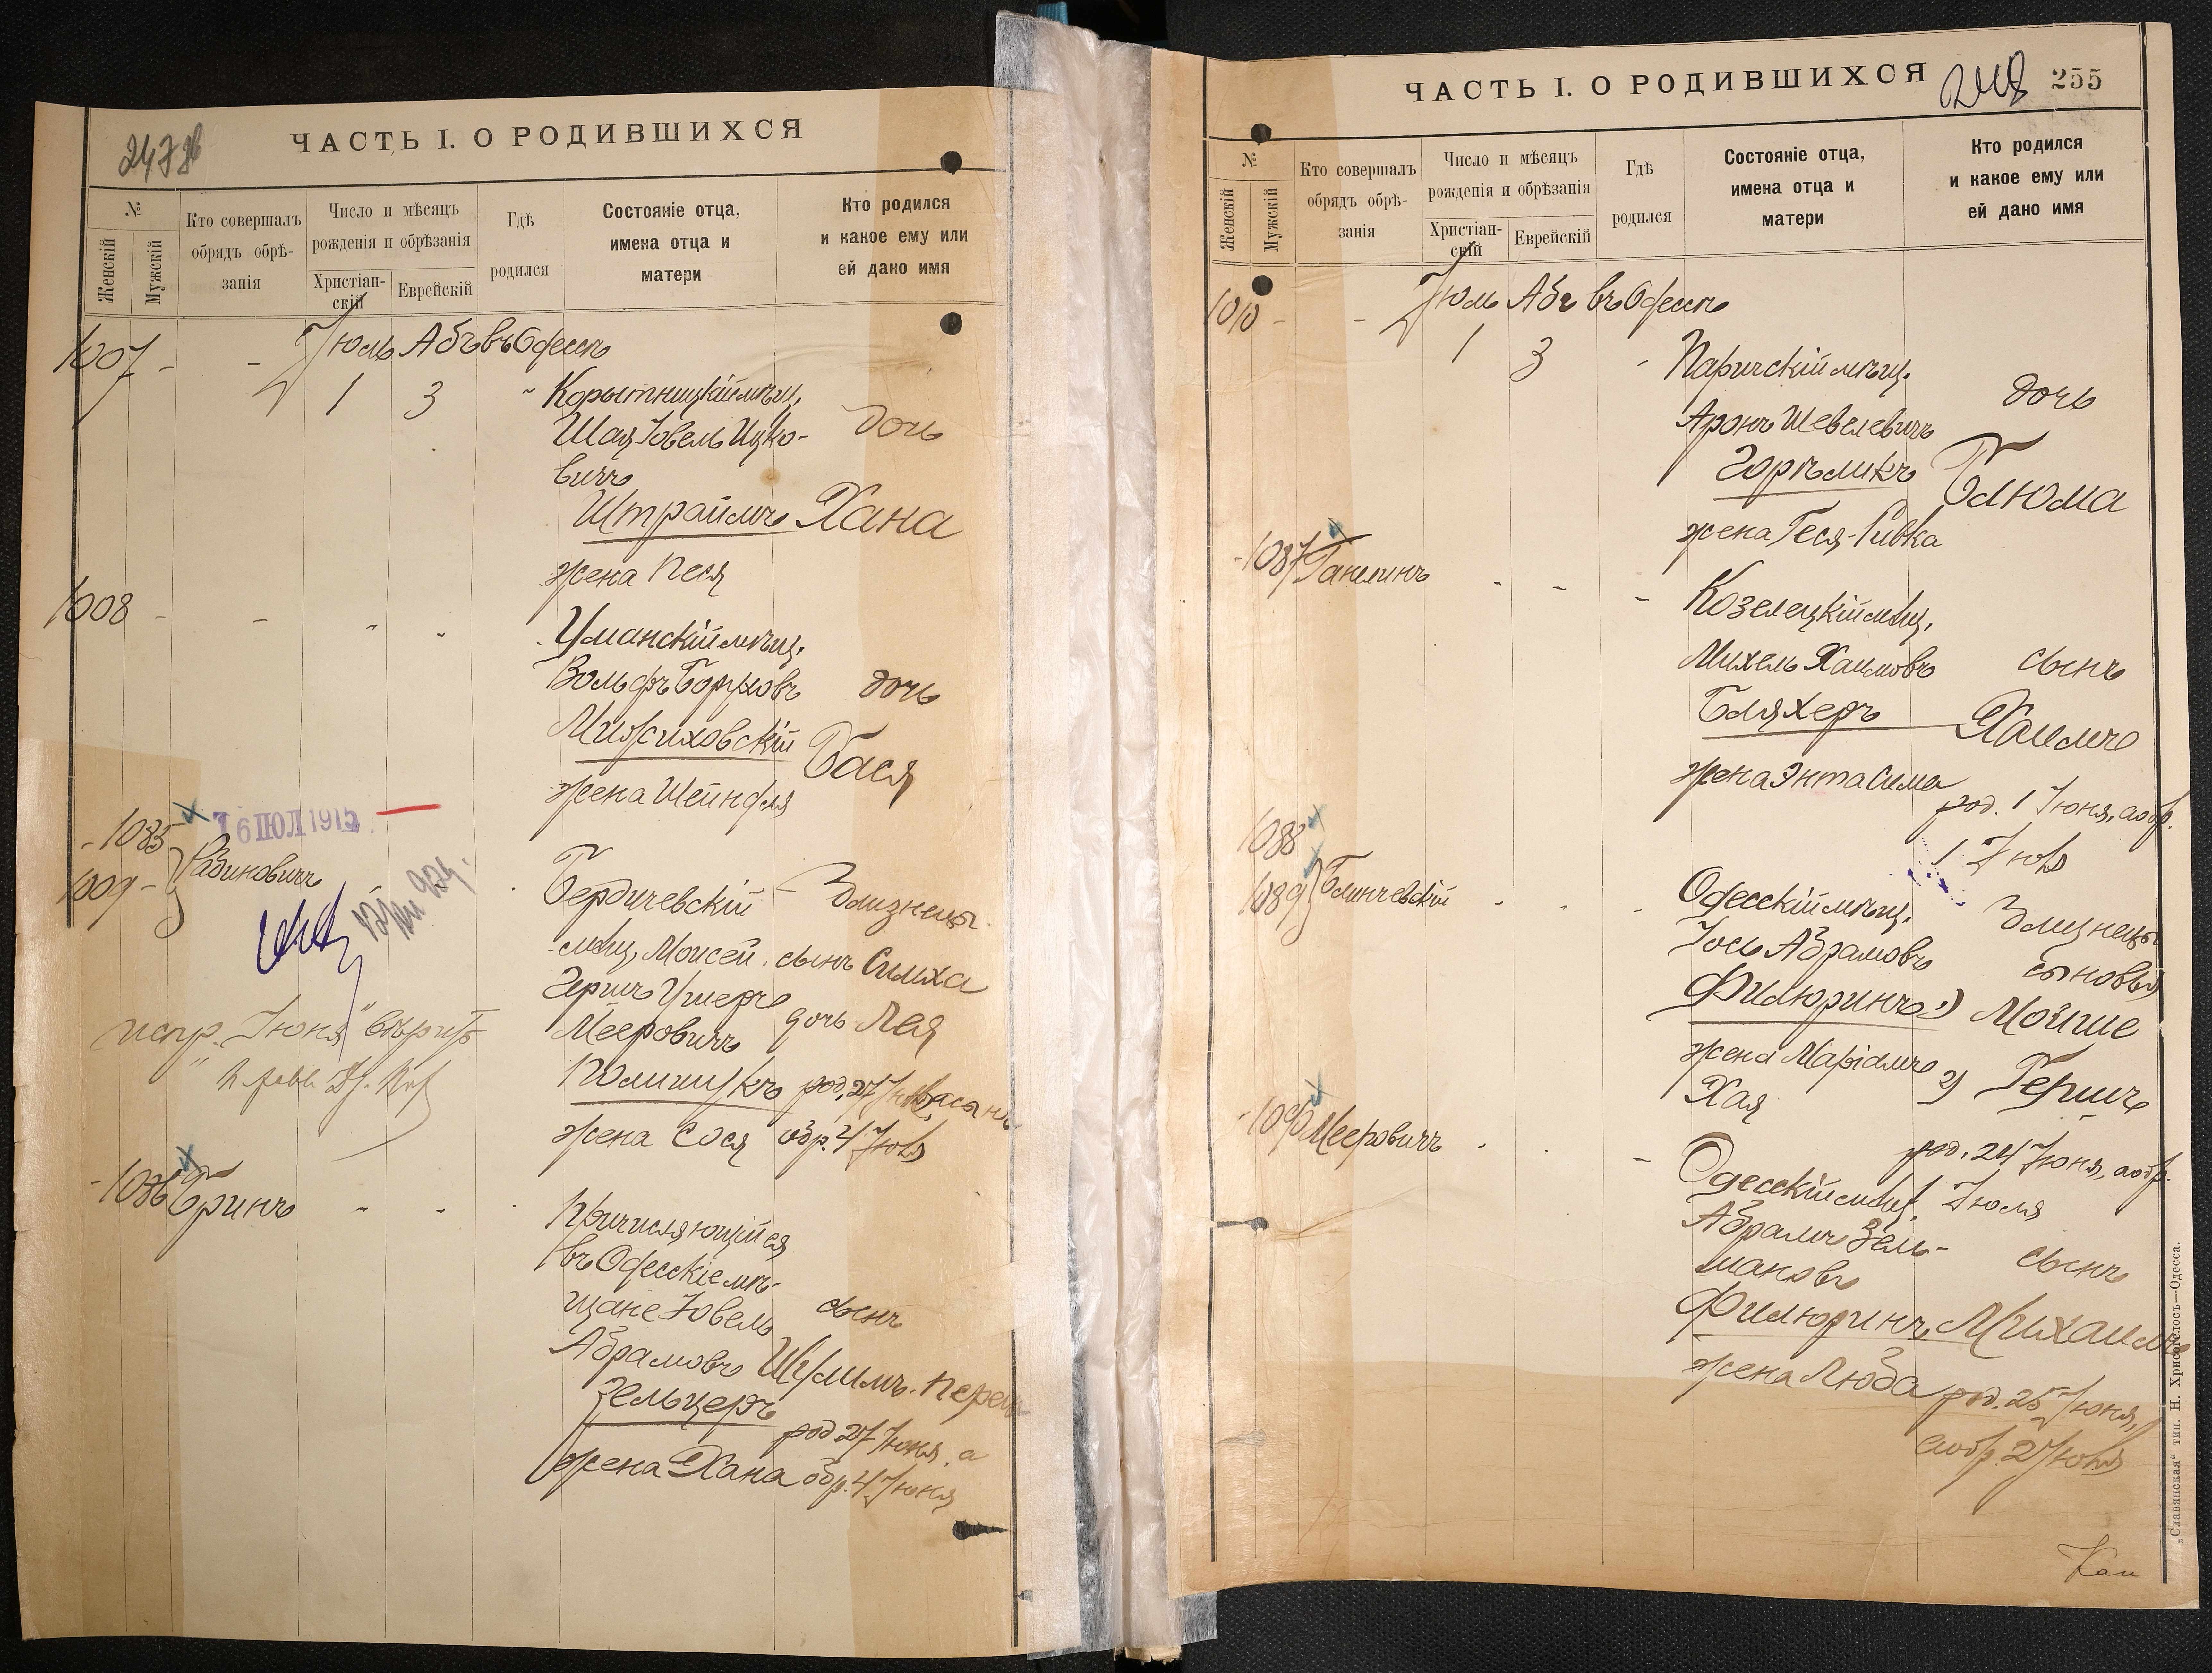 247 об
ЧАСТЬ I. О РОДИВШИХСЯ
№
Женскій
Мужскій
Кто совершалъ
обрядъ обрѣ-
занія
Число и мѣсяцъ
рожденія и обрѣзанія
Христіан-
скій
Еврейскій
Гдѣ
родился
Состояніе отца,
имена отца и
матери
Кто родился
и какое ему или
ей дано имя
1007 - - Іюль Абъ въ Одессѣ
1 3 Корытницкій мѣщ.
Шая Іовель Ицко- дочь
вичъ
Штраймъ Хана
жена Песя
1008 - - " "
Уманскій мѣщ.
Вольфъ Боруховъ дочь
Мижиховскій Бася
жена Шейндля
16 ІЮЛ 1915
- 1085
1009 - Рабиновичъ
Бердичевскій Близнецы
мѣщ. Моисей сынъ Симха
Гершъ Ушеръ дочь Лея
Мееровичъ
Полищукъ род. 27 Іюня, а сынъ
жена Сося обр. 4 Іюля
испр. "Іюня" вѣрить
- 1086 Гринъ " "
Причисляющійся
въ Одесскіе мѣ-
щане Іовель сынъ
Абрамовъ Шулимъ-Перец
Зельцеръ
род 27 Іюня, а
жена Хана обр. 4 Іюня
ЧАСТЬ I. О РОДИВШИХСЯ
248 255
№
Женскій
Мужскій
Кто совершалъ
обрядъ обрѣ-
занія
Число и мѣсяцъ
рожденія и обрѣзанія
Христіан-
скій
Еврейскій
Гдѣ
родился
Состояніе отца,
имена отца и
матери
Кто родился
и какое ему или
ей дано имя
1010 - - Іюль Абъ въ Одессѣ
1 3 Паричскій мѣщ.
дочь
Аронъ Шевелевичъ
Горѣликъ Блюма
жена Геся-Ривка
- 1087 Ганелинъ - - -
Козелецкій мѣщ.
Михель Хаимовъ сынъ
Бляхеръ Хаимъ
жена Энта Сима
род. 1 Іюня, а обр.
1 Іюля
1088
1089 Блинчевскій
Одесскій мѣщ. Близнецы
Іось Абрамовъ сыновья
Филюринъ 1) Мойше
жена Маріамъ 2) Гершъ
Хая
род. 24 Іюня, а обр.
Іюля
- 1090 Мееровичъ
Одесскій мѣщ.
Абрамъ Зель- сынъ
мановъ
Филюринъ Михаилъ
жена Люба род. 25 Іюня,
а обр. 2 Іюля
„Славянская“ тип. Н. Хрисогелосъ—Одесса.